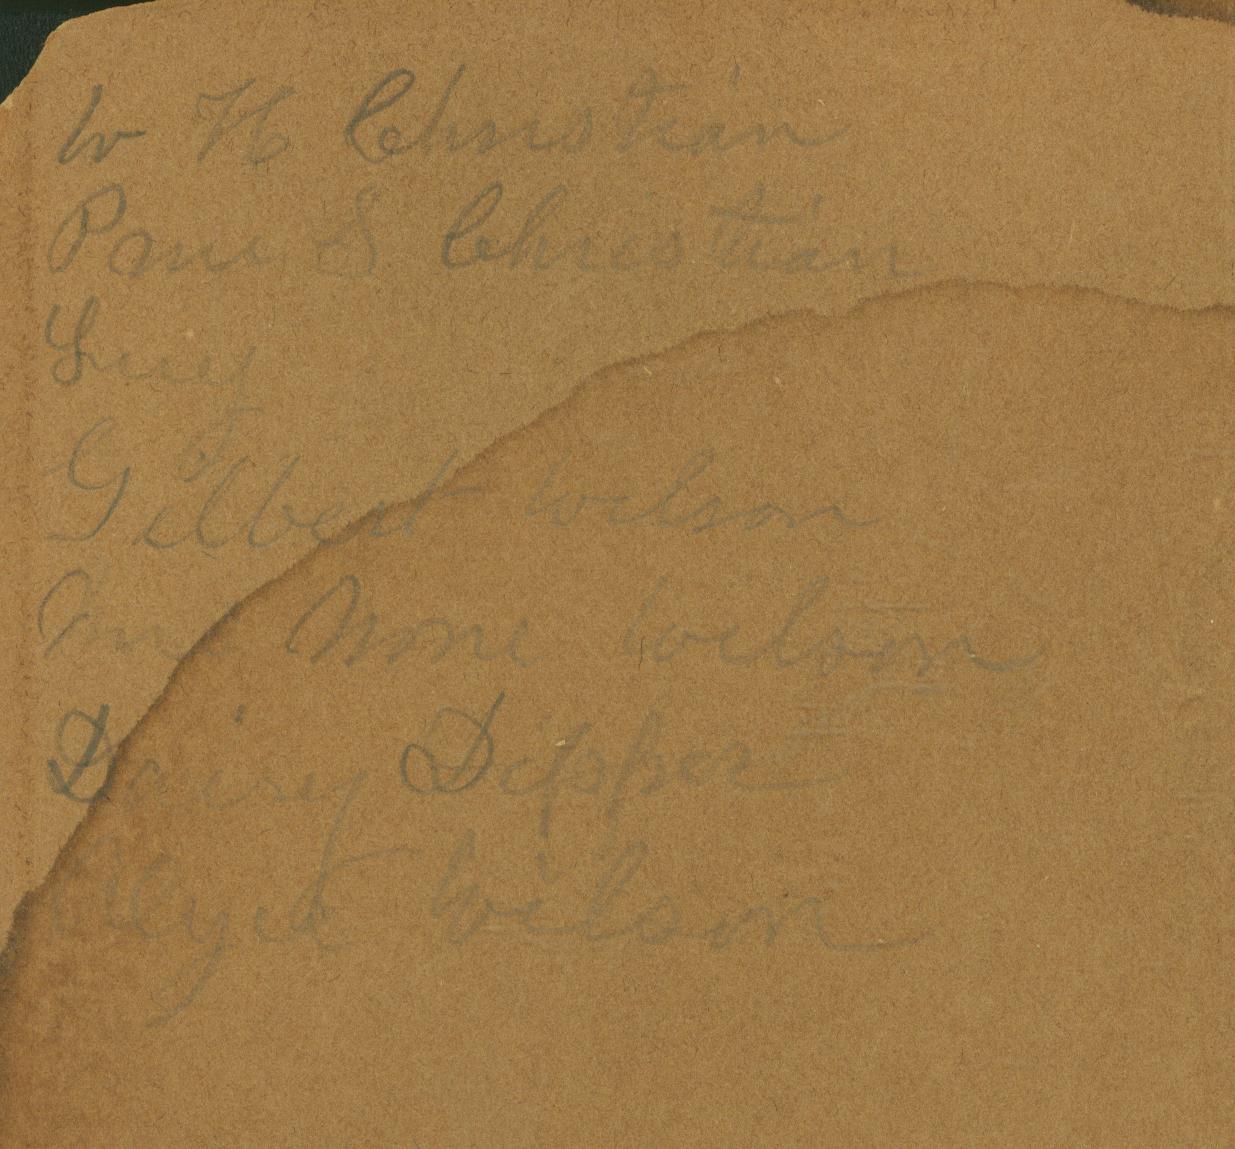 W H Christian
S Christian
Lucy
Gilbert Wilson
Wilson
Daisey Dipper
Wilson